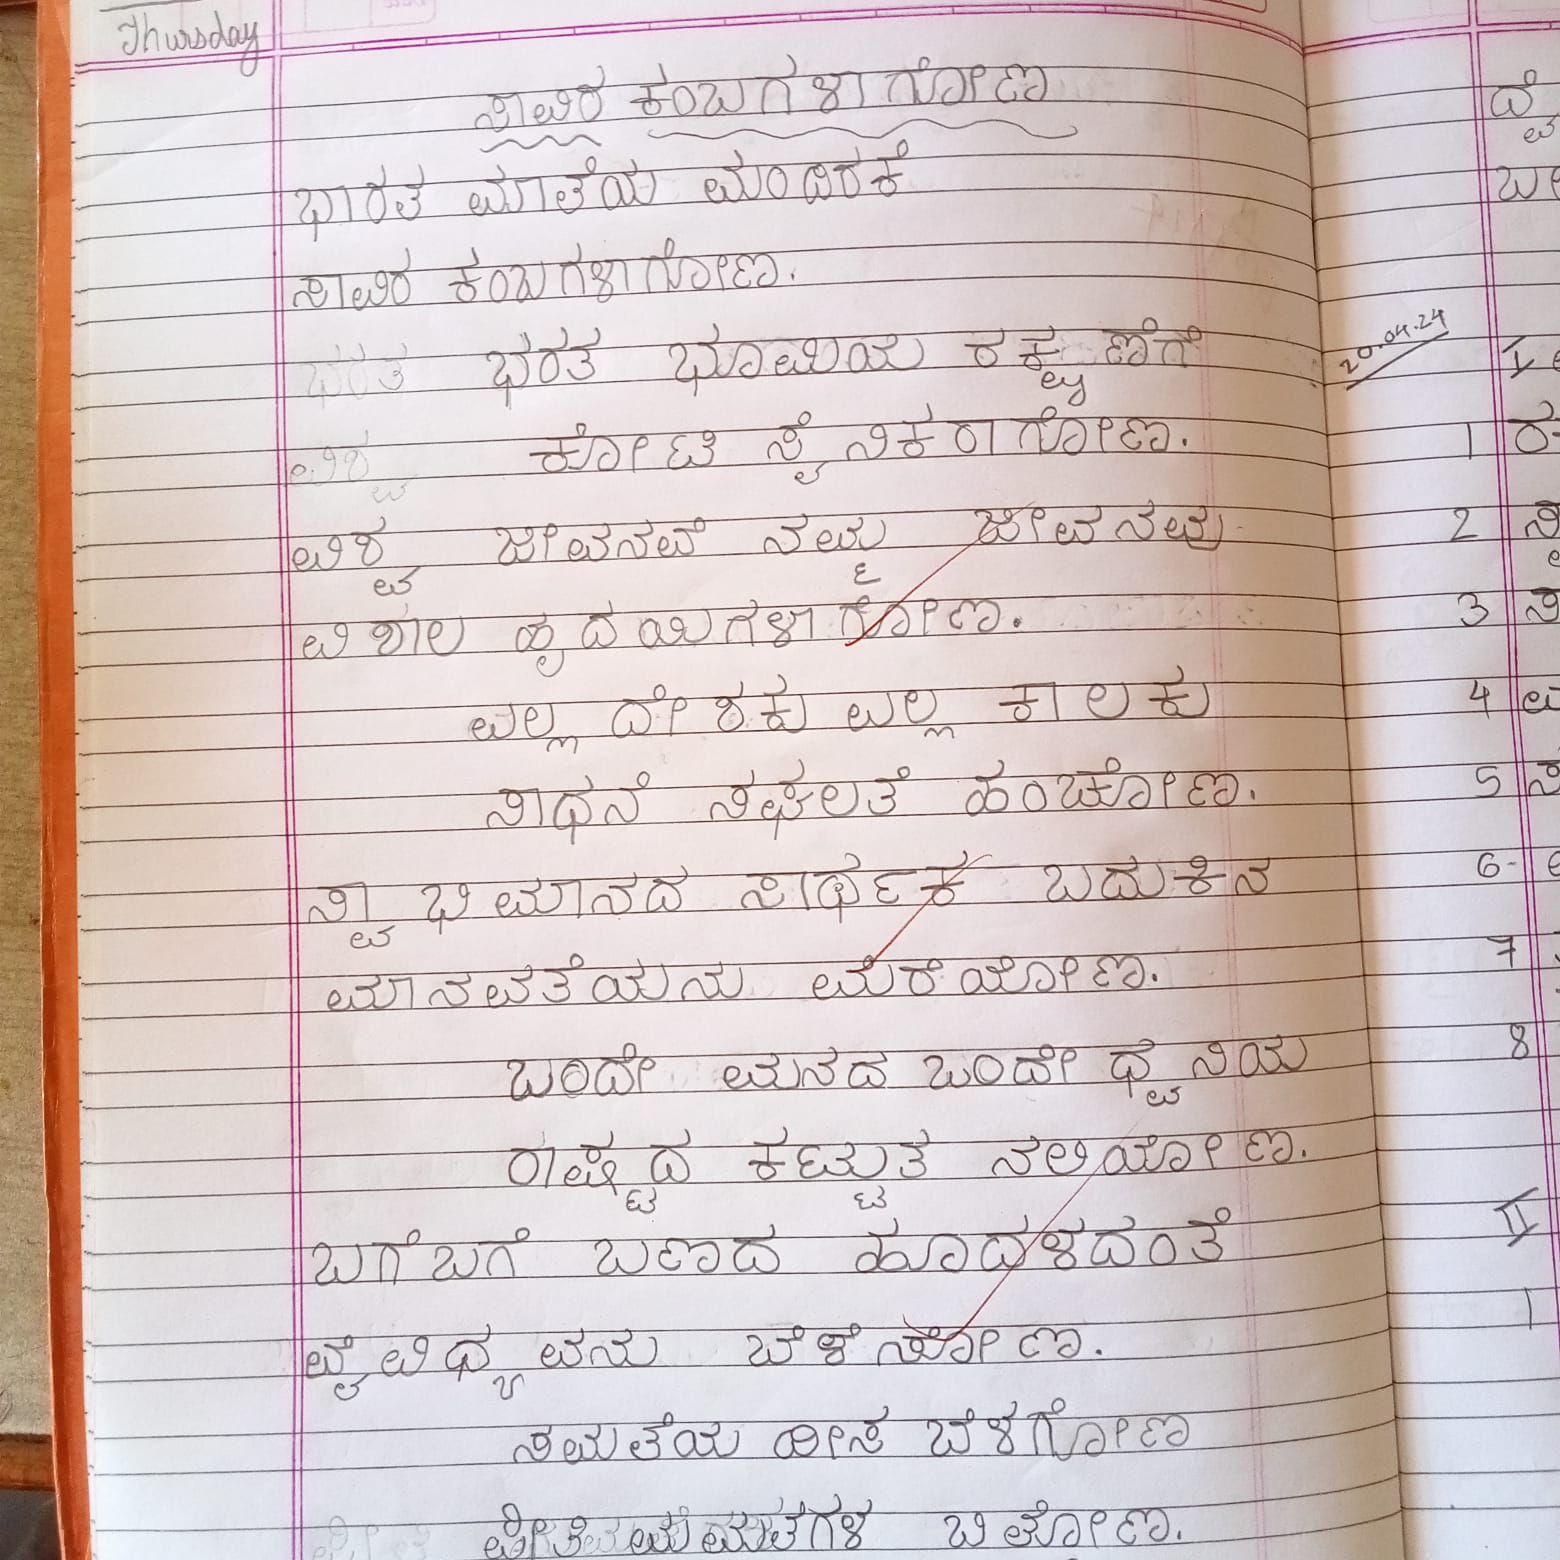 Thursday
ಸಾವಿರ ಕಂಬಗಳಾಗೋಣ
ಭಾರತ ಮಾತೆಯ ಮಂದಿರಕೆ
ಸಾವಿರ ಕಂಬಗಳಾಗೋಣ.
ಭರತ ಭೂಮಿಯ ರಕ್ಷಣೆಗೆ
20.04.24
ಕೋಟಿ ಸೈನಿಕರಾಗೋಣ.
ವಿಶ್ವ ಜೀವನವೆ ನಮ್ಮ ಜೀವನವು
ವಿಶಾಲ ಹೃದಯಿಗಳಾಗೋಣ.
ಎಲ್ಲ ದೇಶಕು ಎಲ್ಲ ಕಾಲಕು
ಸಾಧನೆ ಸಫಲತೆ ಹಂಚೋಣ.
ಸ್ವಾಭಿಮಾನದ ಸಾರ್ಥಕ ಬದುಕಿನ
ಮಾನವತೆಯನು ಮೆರೆಯೋಣ.
ಒಂದೇ ಮನದ ಒಂದೇ ಧ್ವನಿಯ
ರಾಷ್ಟ್ರದ ಕಟ್ಟುತ ನಲಿಯೋಣ.
ಬಗೆಬಗೆ ಬಣದ ಹೂದಳದಂತೆ
ವೈವಿಧ್ಯವನು ಬೆಳೆಸೋಣ.
ಸಮತೆಯ ದೀಪ ಬೆಳಗೋಣ
ಬಿತ್ತೋಣ.
1
2
3
4
5
6
7
8
II
1